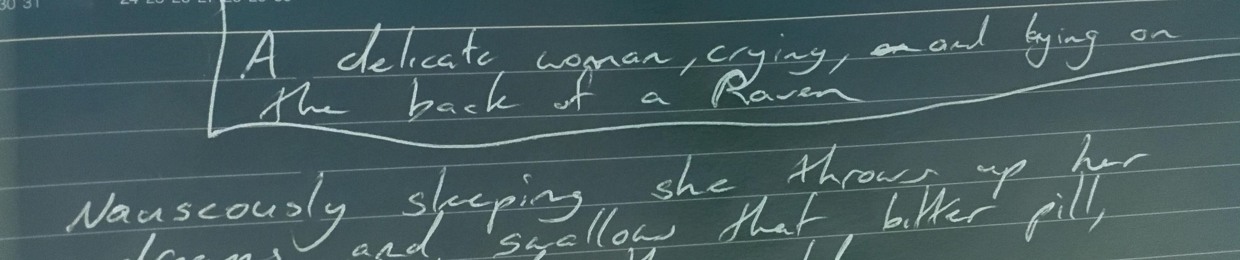 30 31
A delicate woman, crying, and lying on
the back of a Raven
Nauseously sleeping she throws up her
dreams and swallows that bitter pill,